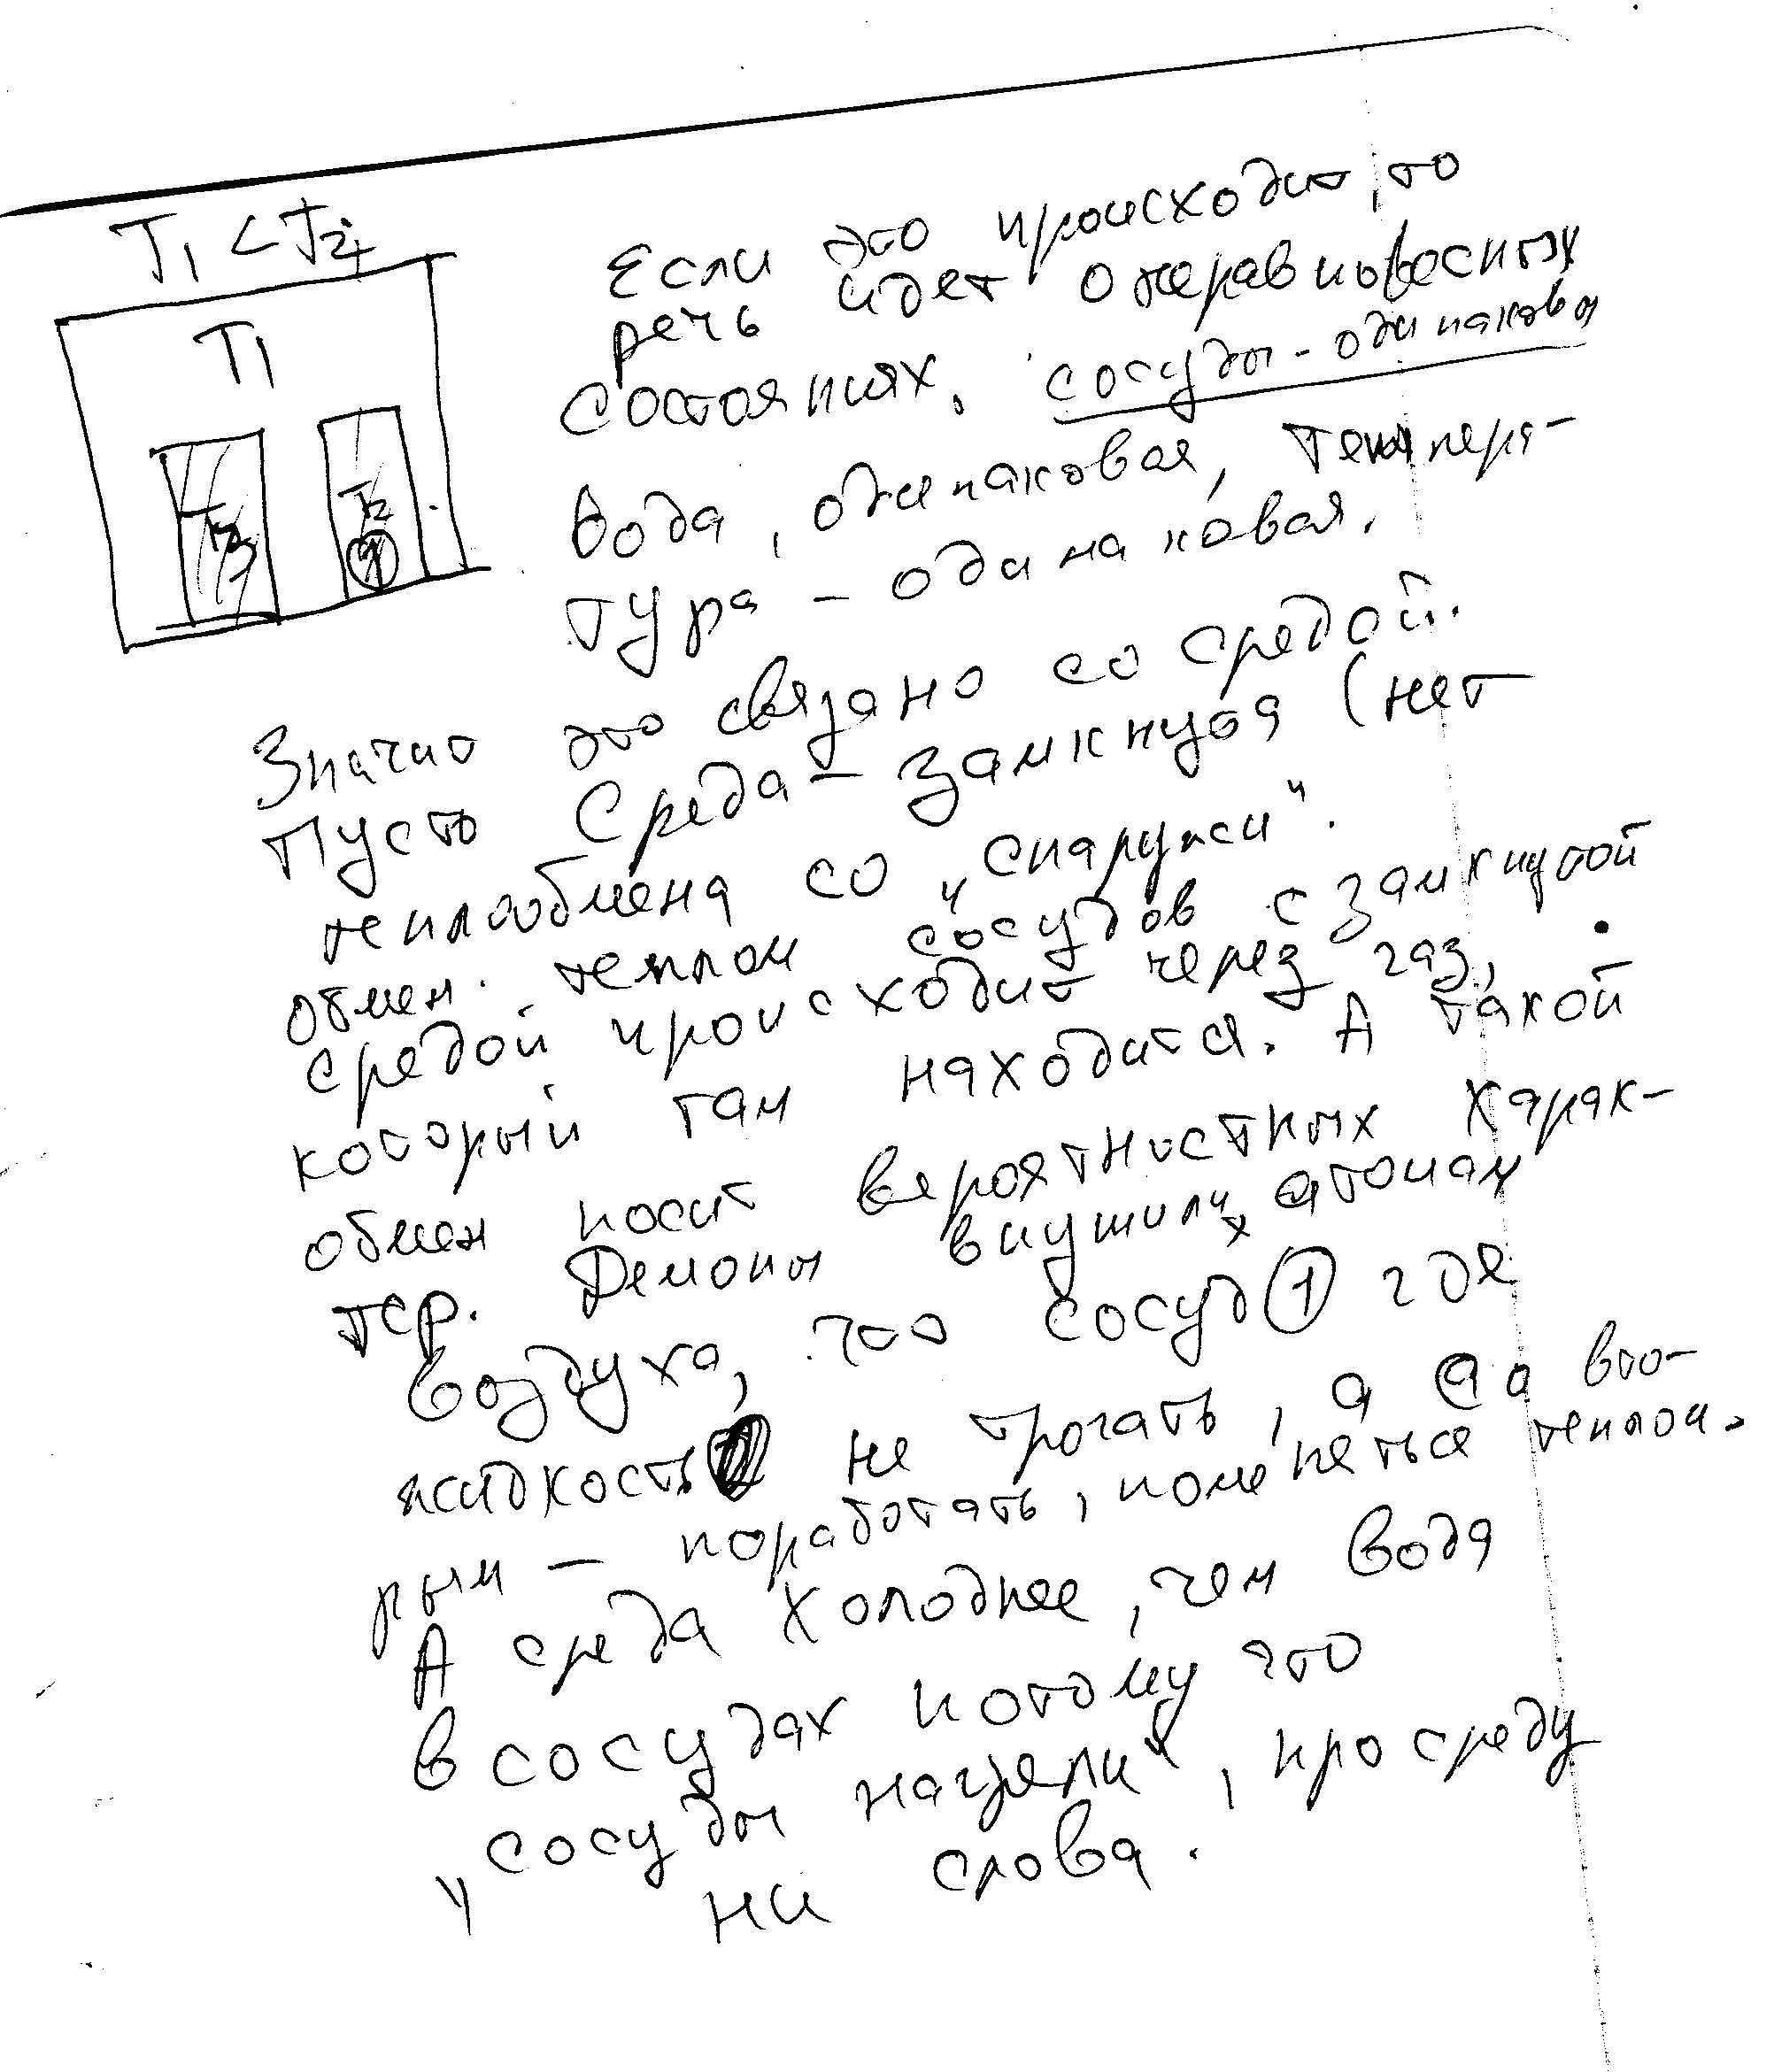 T1 < T2
T1
T2
T2
Если это происходит, то
речь идет о неравновесных
состояниях, сосуды - одинаковы
Вода, одинаковая, темпера-
тура - одинаковая.
Значит это связано со средой.
Пусть Среда - замкнутая (нет
теплообмена со "снаружи".
обмен теплом сосудов с замкнутой
средой происходит через газ,
который там находится. А такой
обмен носит вероятностных харак-
тер. Демоны внушили атомам
воздуха, что сосуд 1 где
жидкость не трогать, а со вто-
рым - поработать, поменяться теплом.
А среда холоднее, чем вода
в сосудах потому что
"сосуды нагрели", про среду
ни слова.